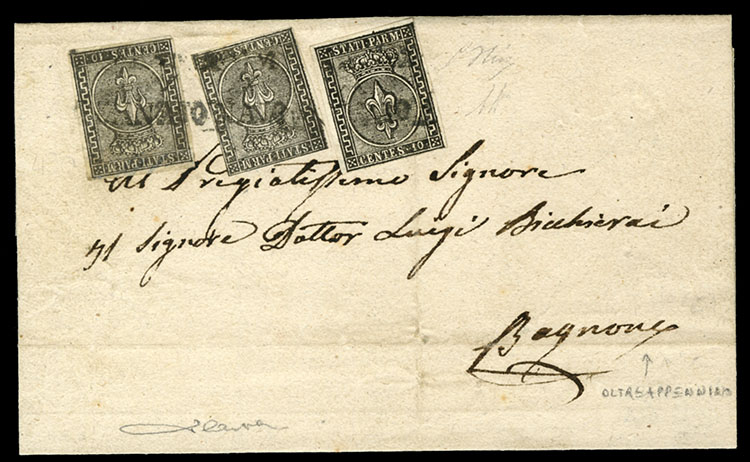 CENTES. 10
STATI PARM
CENTES. 10
STATI PARM
STATI PARM
CENTES. 10
Al Pregiatissimo Signore
Il Signore Dottor Luigi Bicchierai
Bagnone
OLTREAPPENNINO